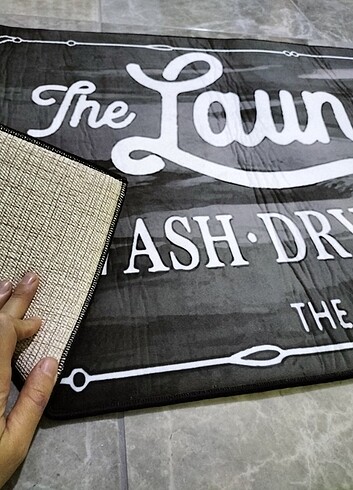 The Laun
ASH · DRY
THE